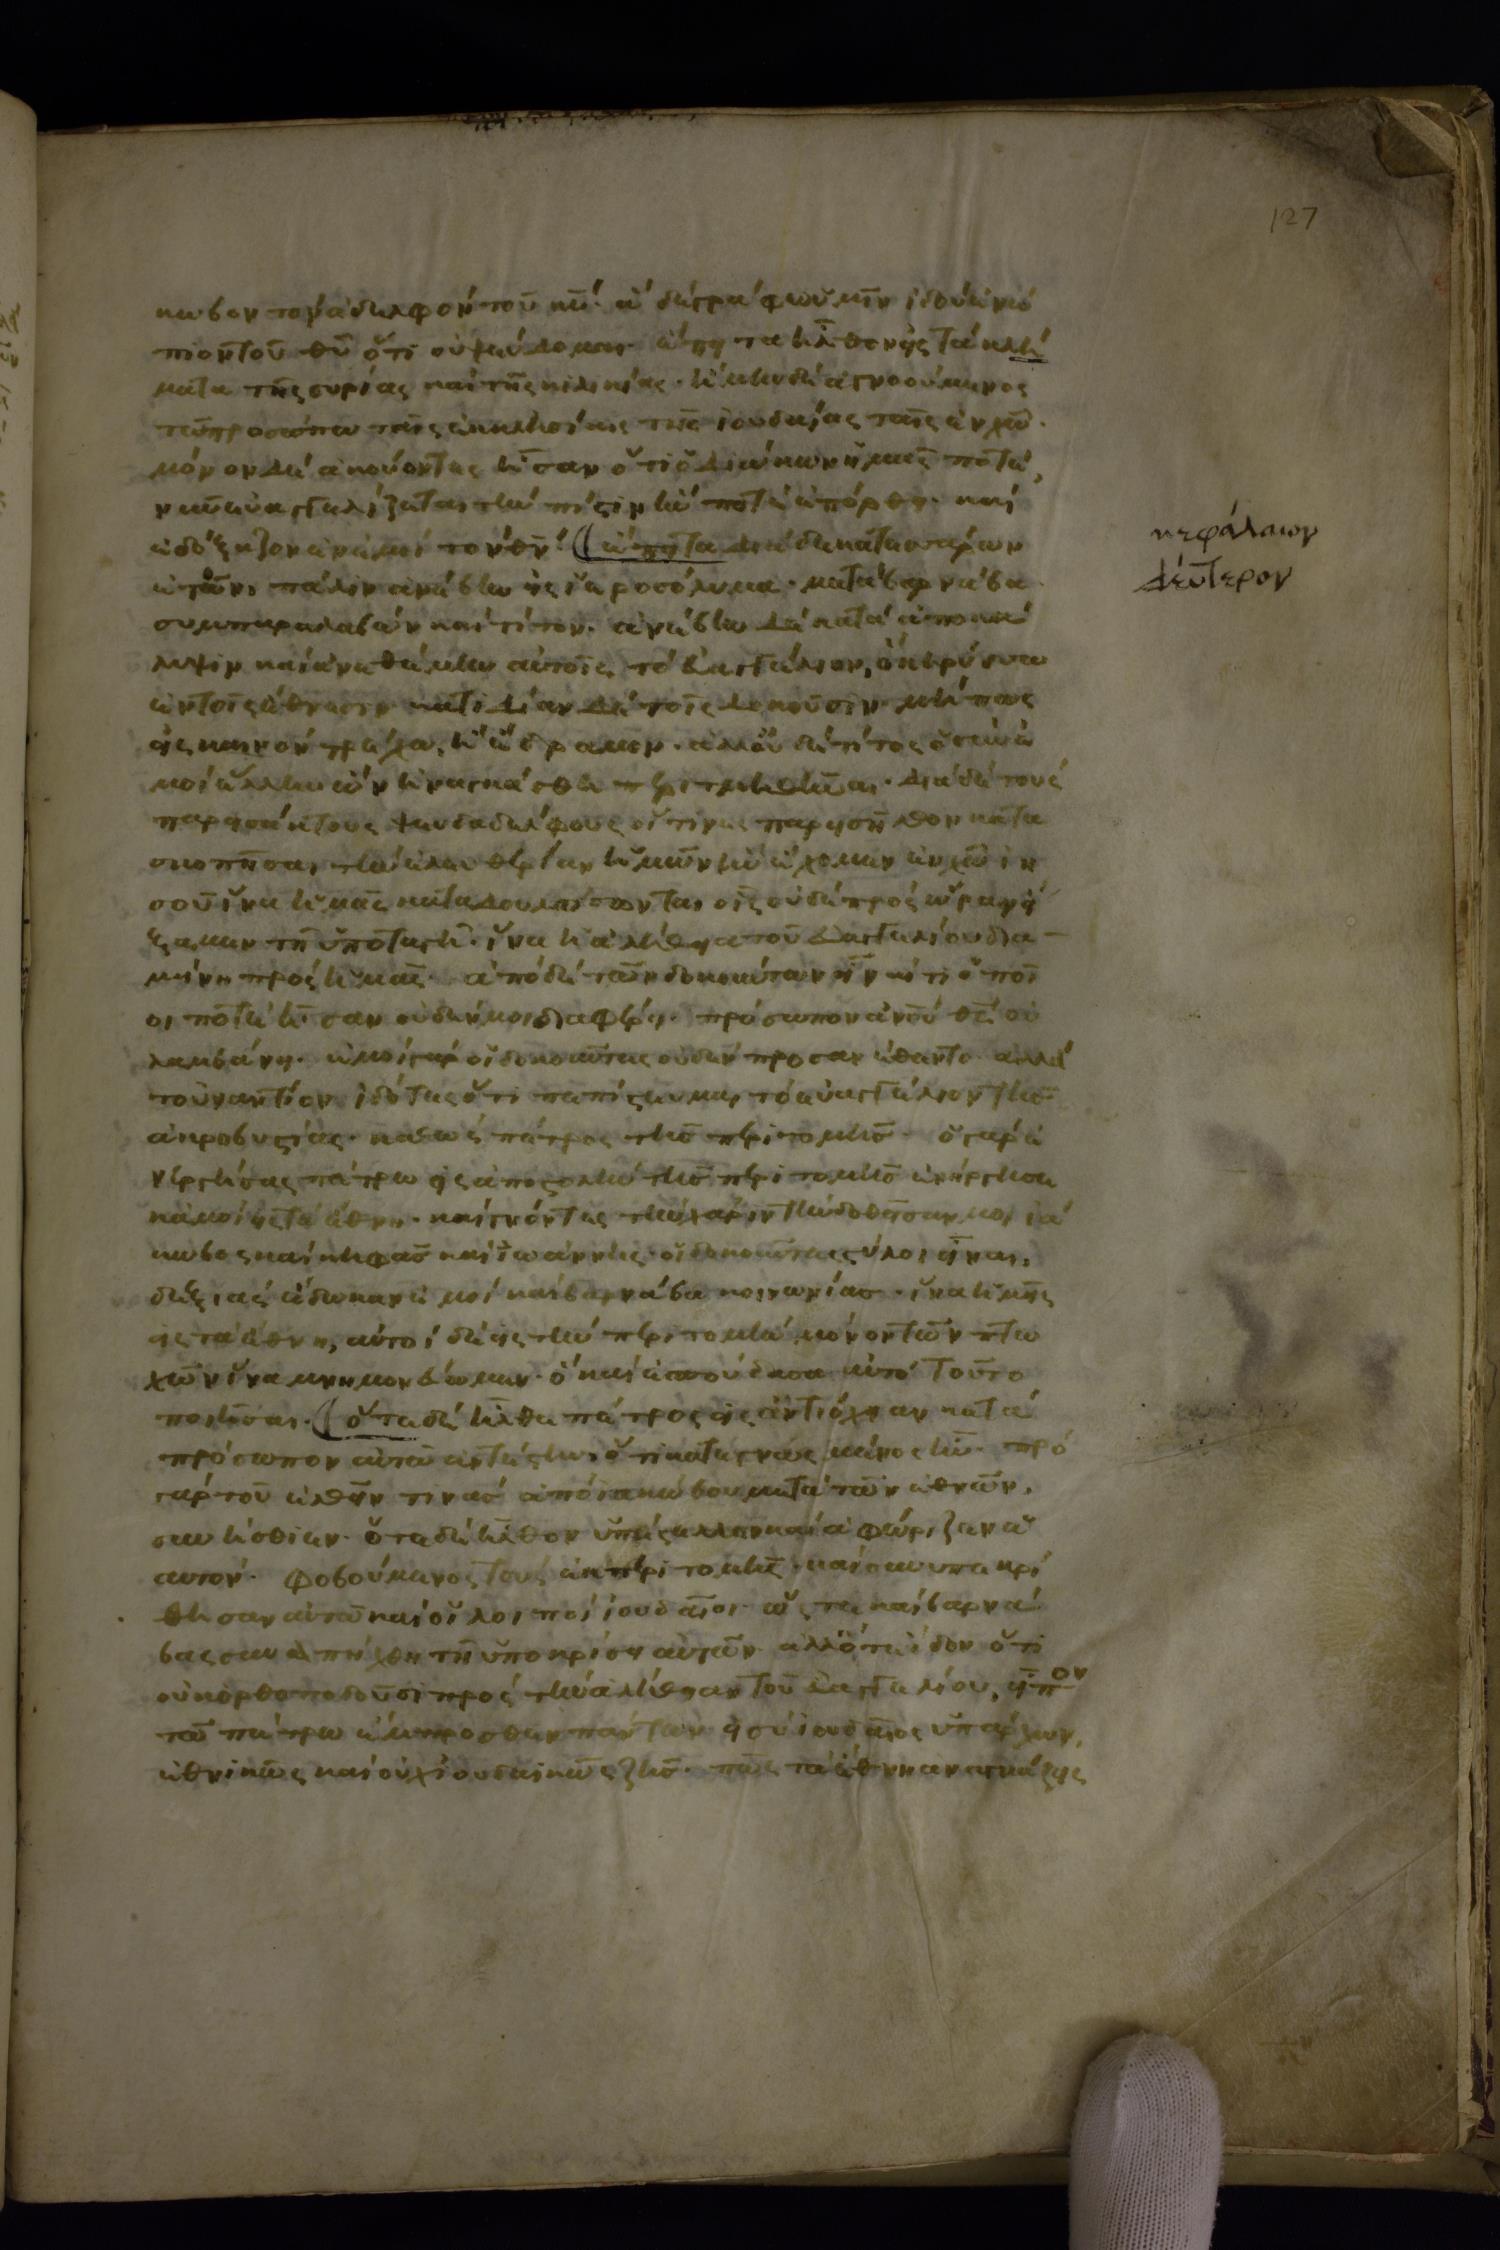 127
κωβον τὸν ἀδελφὸν τοῦ κυ· ἃ δὲ γράφω ὑμῖν ἰδοὺ ἐνώ
πιον τοῦ θυ ὅτι οὐ ψεύδομαι· ἔπειτα ἦλθον εἰς τὰ κλί
ματα τῆς συρίας καὶ τῆς κιλικίας· ἤμην δὲ ἀγνοούμενος
τῷ προσώπω ταῖς ἐκκλησίαις τῆς ἰουδαίας ταῖς ἐν χω·
μόνον δὲ ἀκούοντες ἦσαν ὅτι ὁ διώκων ἡμᾶς ποτέ,
νῦν εὐαγγελίζεται τὴν πίστιν ἥν ποτε ἐπόρθει· καὶ
ἐδόξαζον ἐν ἐμοὶ τὸν θν· ἔπειτα διὰ δεκατεσσάρων
ἐτῶν πάλιν ἀνέβην εἰς ἱεροσόλυμα· μετὰ βαρνάβα
συμπαραλαβὼν καὶ τίτον· ἀνέβην δὲ κατὰ ἀποκά
λυψιν καὶ ἀνεθέμην αὐτοῖς τὸ εὐαγγέλιον, ὃ κηρύσσω
ἐν τοῖς ἔθνεσιν κατιδίαν δὲ τοῖς δοκοῦσιν· μή πως
εἰς κενὸν τρέχω, ἢ ἔδραμον· ἀλλ' οὐδὲ τίτος ὁ σὺν ἐ
μοὶ ἕλλην ὢν ἠναγκάσθη περιτμηθῆναι· διὰ δὲ τοὺς
παρεισάκτους ψευδαδέλφους οἵτινες παρεισῆλθον κατα
σκοπῆσαι τὴν ἐλευθερίαν ἡμῶν ἣν ἔχομεν ἐν χω ιη
σοῦ ἵνα ἡμᾶς καταδουλώσωνται οἷς οὐδὲ πρὸς ὥραν εἴ
ξαμεν τῇ ὑποταγῇ· ἵνα ἡ ἀλήθεια τοῦ εὐαγγελίου δια
μείνη πρὸς ἡμᾶς· ἀπὸ δὲ τῶν δοκούντων εἶναί τι ὁποῖ
οι ποτὲ ἦσαν οὐδέν μοι διαφέρει· πρόσωπον ἀνου θς οὐ
λαμβάνει· ἐμοὶ γὰρ οἱ δοκοῦντες οὐδὲν προσανέθεντο· ἀλλὰ
τοὐναντίον ἰδότες ὅτι πεπίστευμαι τὸ εὐαγγέλιον τῆς
ἀκροβυστίας· καθὼς πέτρος τῆς περιτομῆς· ὁ γὰρ ἐ
νεργήσας πέτρω εἰς ἀποστολὴν τῆς περιτομῆς ἐνήργησε
κἀμοὶ εἰς τὰ ἔθνη· καὶ γνόντες τὴν χάριν τὴν δοθεῖσαν μοι ἰά
κωβος καὶ κηφᾶς καὶ ἰωάννης οἱ δοκοῦντες στύλοι εἶναι,
δεξιὰς ἔδωκαν ἐμοὶ καὶ βαρνάβα κοινωνίας· ἵνα ἡμεῖς
εἰς τὰ ἔθνη, αὐτοὶ δὲ εἰς τὴν περιτομήν μόνον τῶν πτω
χῶν ἵνα μνημονεύωμεν· ὃ καὶ ἐσπούδασα αὐτὸ τοῦτο
ποιῆσαι· ὅτε δὲ ἦλθε πέτρος εἰς ἀντιόχειαν κατὰ
πρόσωπον αὐτῶ ἀντέστην, ὅτι κατεγνωσμένος ἦν· πρὸ
γὰρ τοῦ ἐλθεῖν τινας ἀπὸ ἰακώβου μετὰ τῶν ἐθνῶν,
συνήσθιεν· ὅτε δὲ ἦλθον ὑπέστελλεν καὶ ἀφώριζεν ἑ
αυτόν· φοβούμενος τοὺς ἐκ περιτομῆς· καὶ συνυπεκρί
θησαν αὐτῶ καὶ οἱ λοιποὶ ἰουδαῖοι· ὥστε καὶ βαρνά
βας συναπήχθη τῇ ὑποκρίσει αὐτῶν· ἀλλ' ὅτε ἶδον ὅτι
οὐκ ὀρθοποδοῦσι πρὸς τὴν ἀλήθειαν τοῦ εὐαγγελίου, εἶπον
τῶ πέτρω ἔμπροσθεν πάντων εἰ σὺ ἰουδαῖος ὑπάρχων,
ἐθνικῶς καὶ οὐχ ἰουδαικῶς ζῆς· πῶς τὰ ἔθνη ἀναγκάζεις
κεφάλαιον
δεύτερον